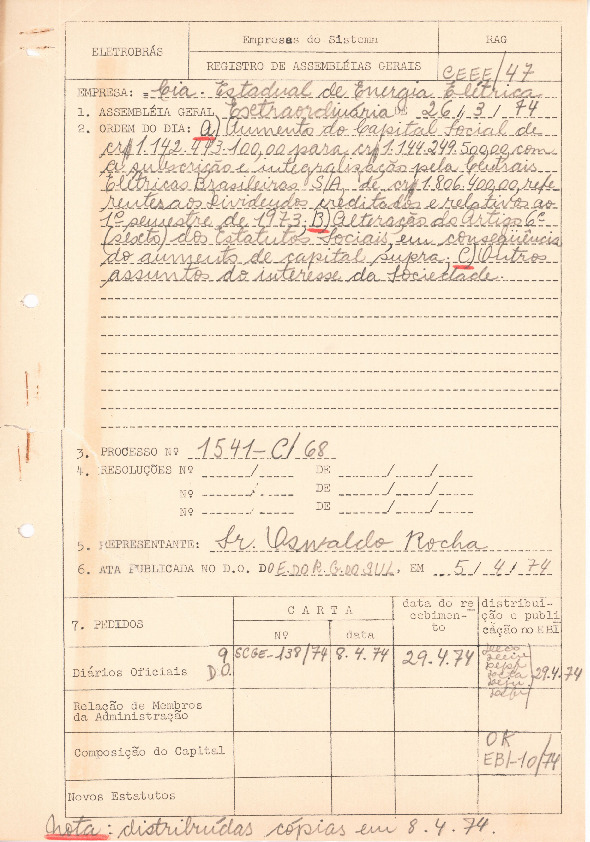 ELETROBRÁS
Empresas do Sistema
RAG
REGISTRO DE ASSEMBLÉIAS GERAIS
CEEE/47
EMPRESA: Cia. Estadual de Energia Elétrica
1. ASSEMBLÉIA GERAL Extraordinária DE 26/3/74
2. ORDEM DO DIA: A) Aumento do Capital Social de
cr$ 1.142.443.100,00 para cr$ 1.144.249.500,00, com
a subscrição e integralização pela Centrais
Elétricas Brasileiras S/A, de cr$ 1.806.400,00, refe
rentes aos Dividendos creditados e relativos ao
1º semestre de 1973; B) Alteração do Artigo 6º
(sexto) dos Estatutos Sociais, em conseqüência
do aumento de capital supra; C) Outros
assuntos do interesse da Sociedade.
3. PROCESSO Nº 1541-C/68
4. RESOLUÇÕES Nº / DE / /
Nº / DE / /
Nº / DE / /
5. REPRESENTANTE: Sr. Oswaldo Rocha
6. ATA PUBLICADA NO D.O. DO E. DO R. G. DO SUL. EM 5/4/74
7. PEDIDOS
CARTA
Nº
data
data do re
cebimen-
to
distribui-
ção e publi
cação no EBI
Diários Oficiais
9 D.O.
SCGE-138/74
8.4.74
29.4.74
29.4.74
Relação de Membros
da Administração
Composição do Capital
OK
EBI-10/74
Novos Estatutos
Nota: distribuídas cópias em 8.4.74.